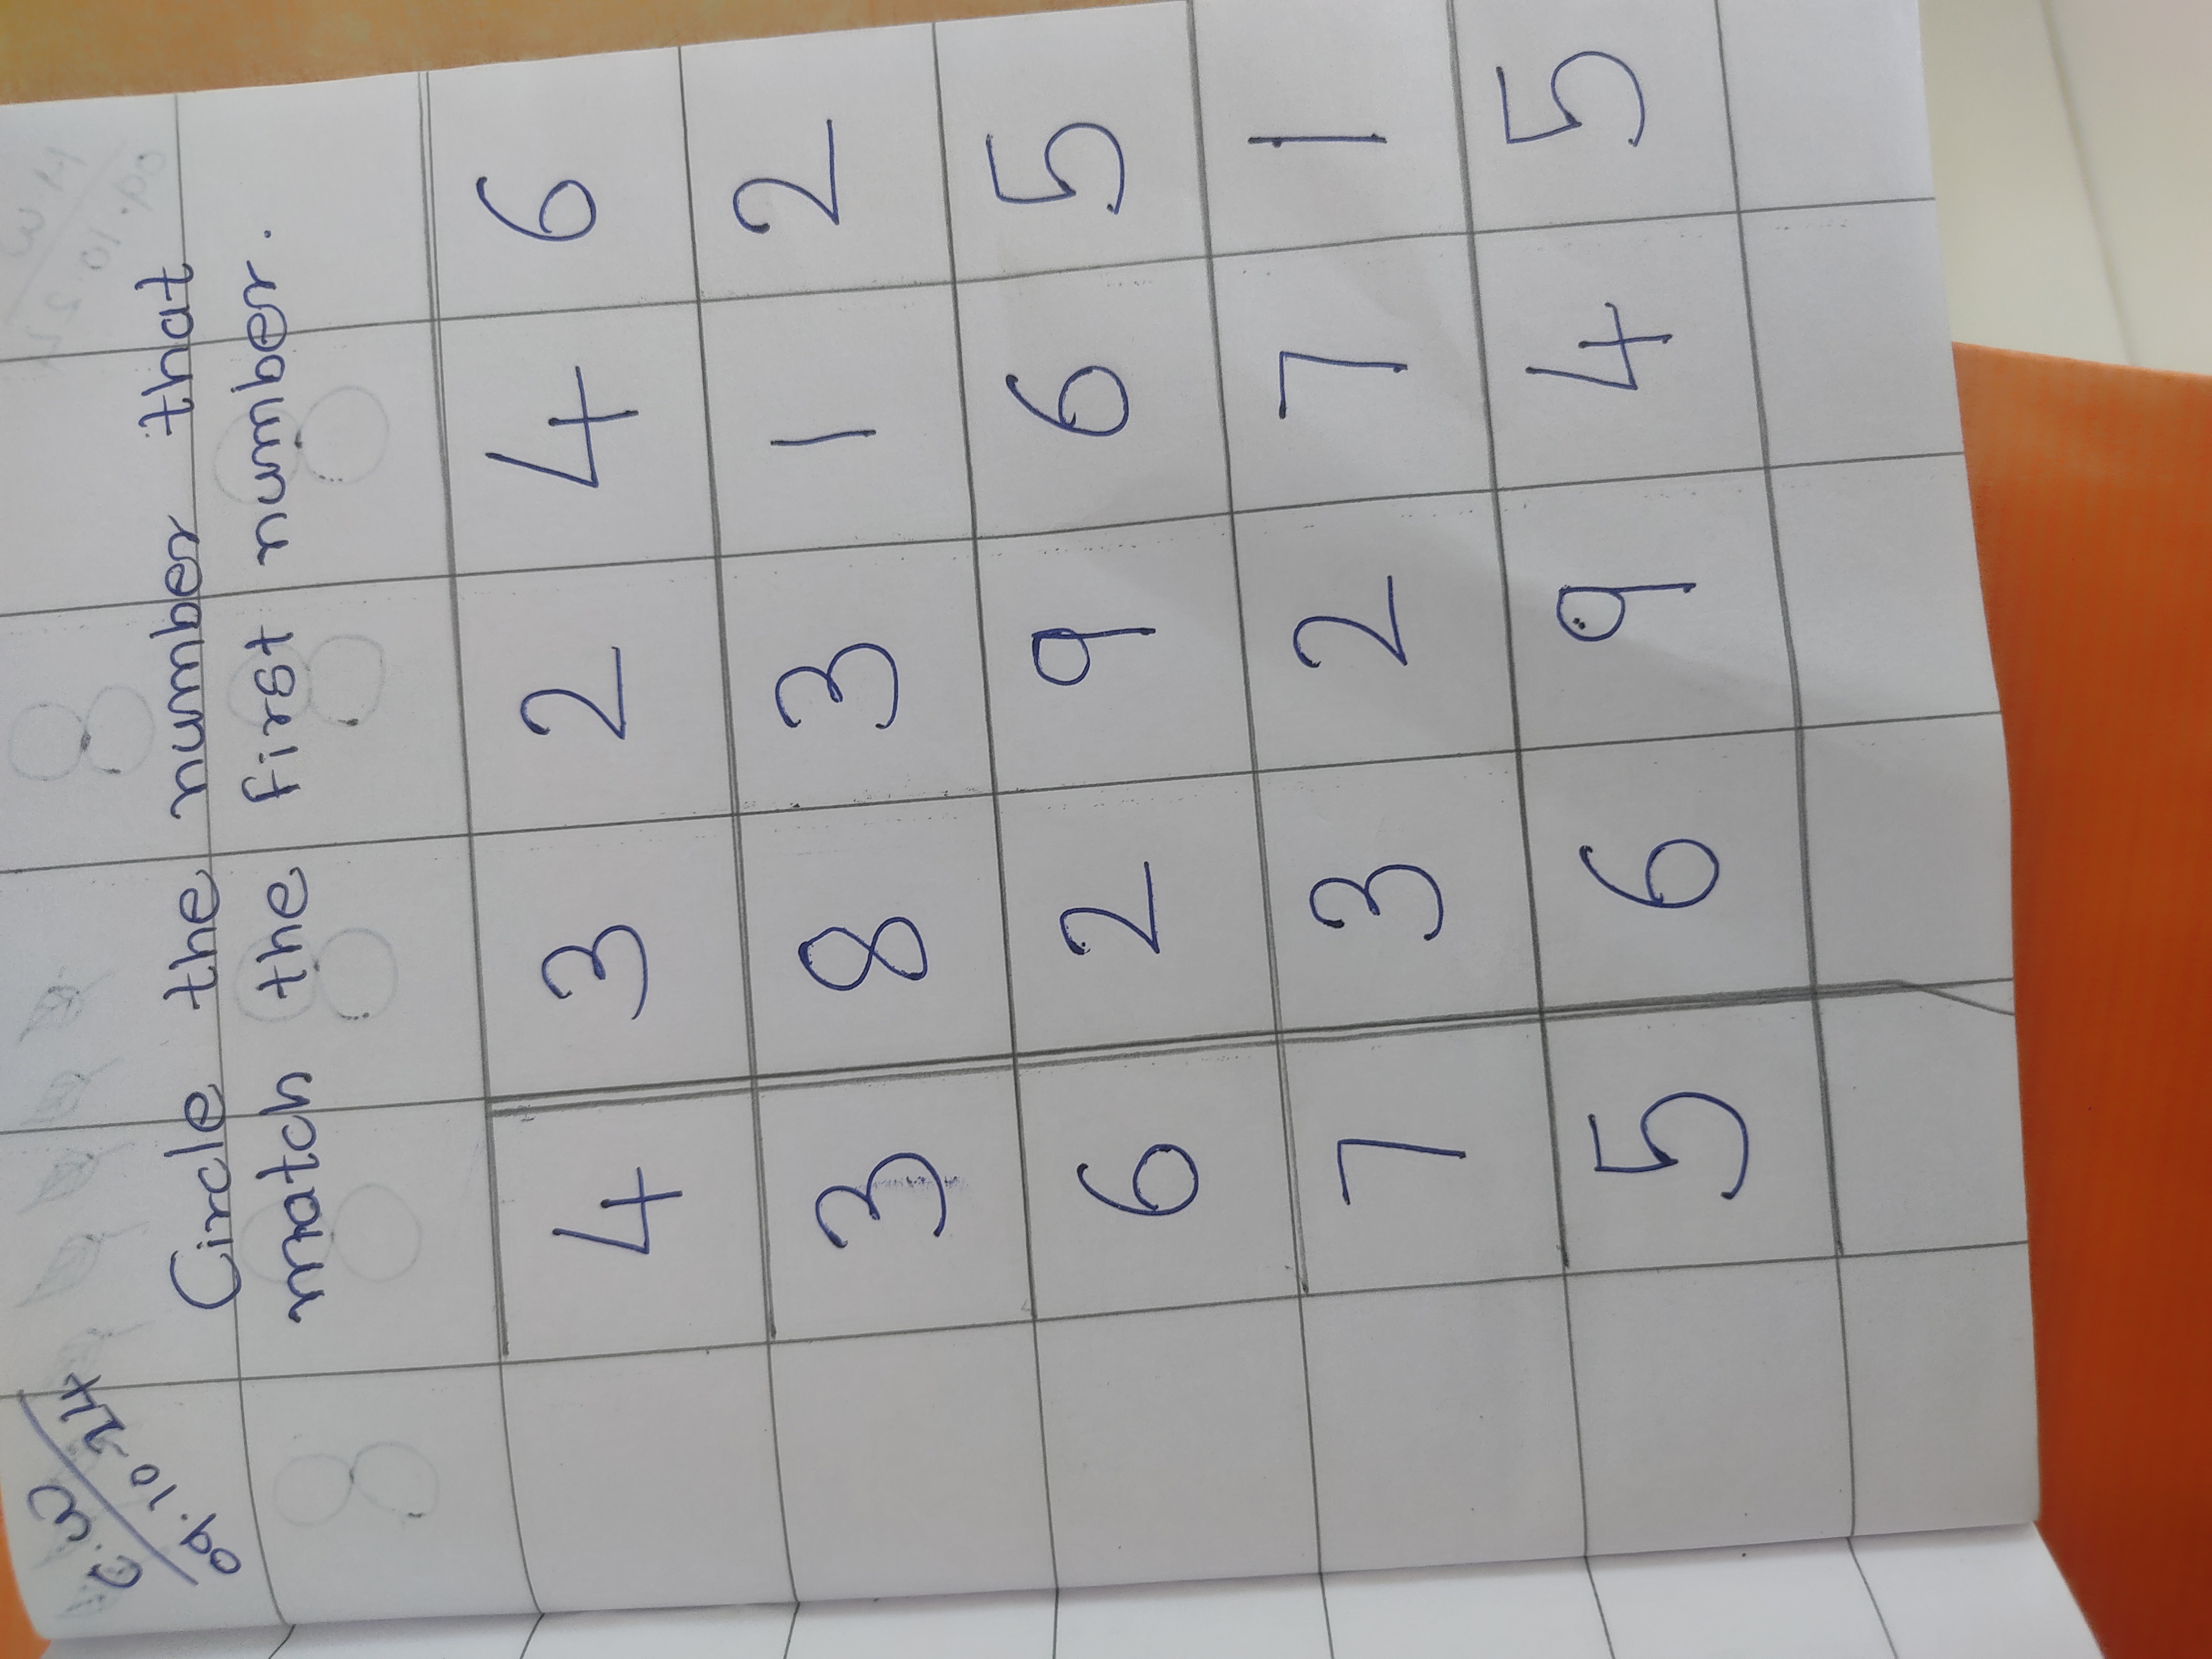 C.W
09.10.24
Circle the number that
match the first number.
4 3 2 4 6
3 8 3 1 2
6 2 9 6 5
7 3 2 7 1
5 6 9 4 5